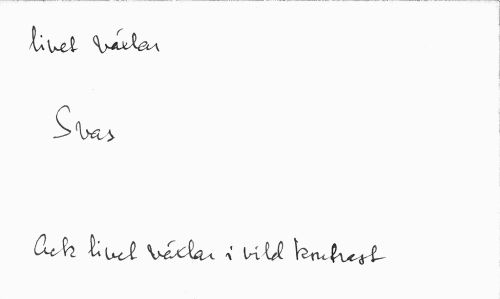 livet växlar
Svas
Ack livet växlar i vild kontrast